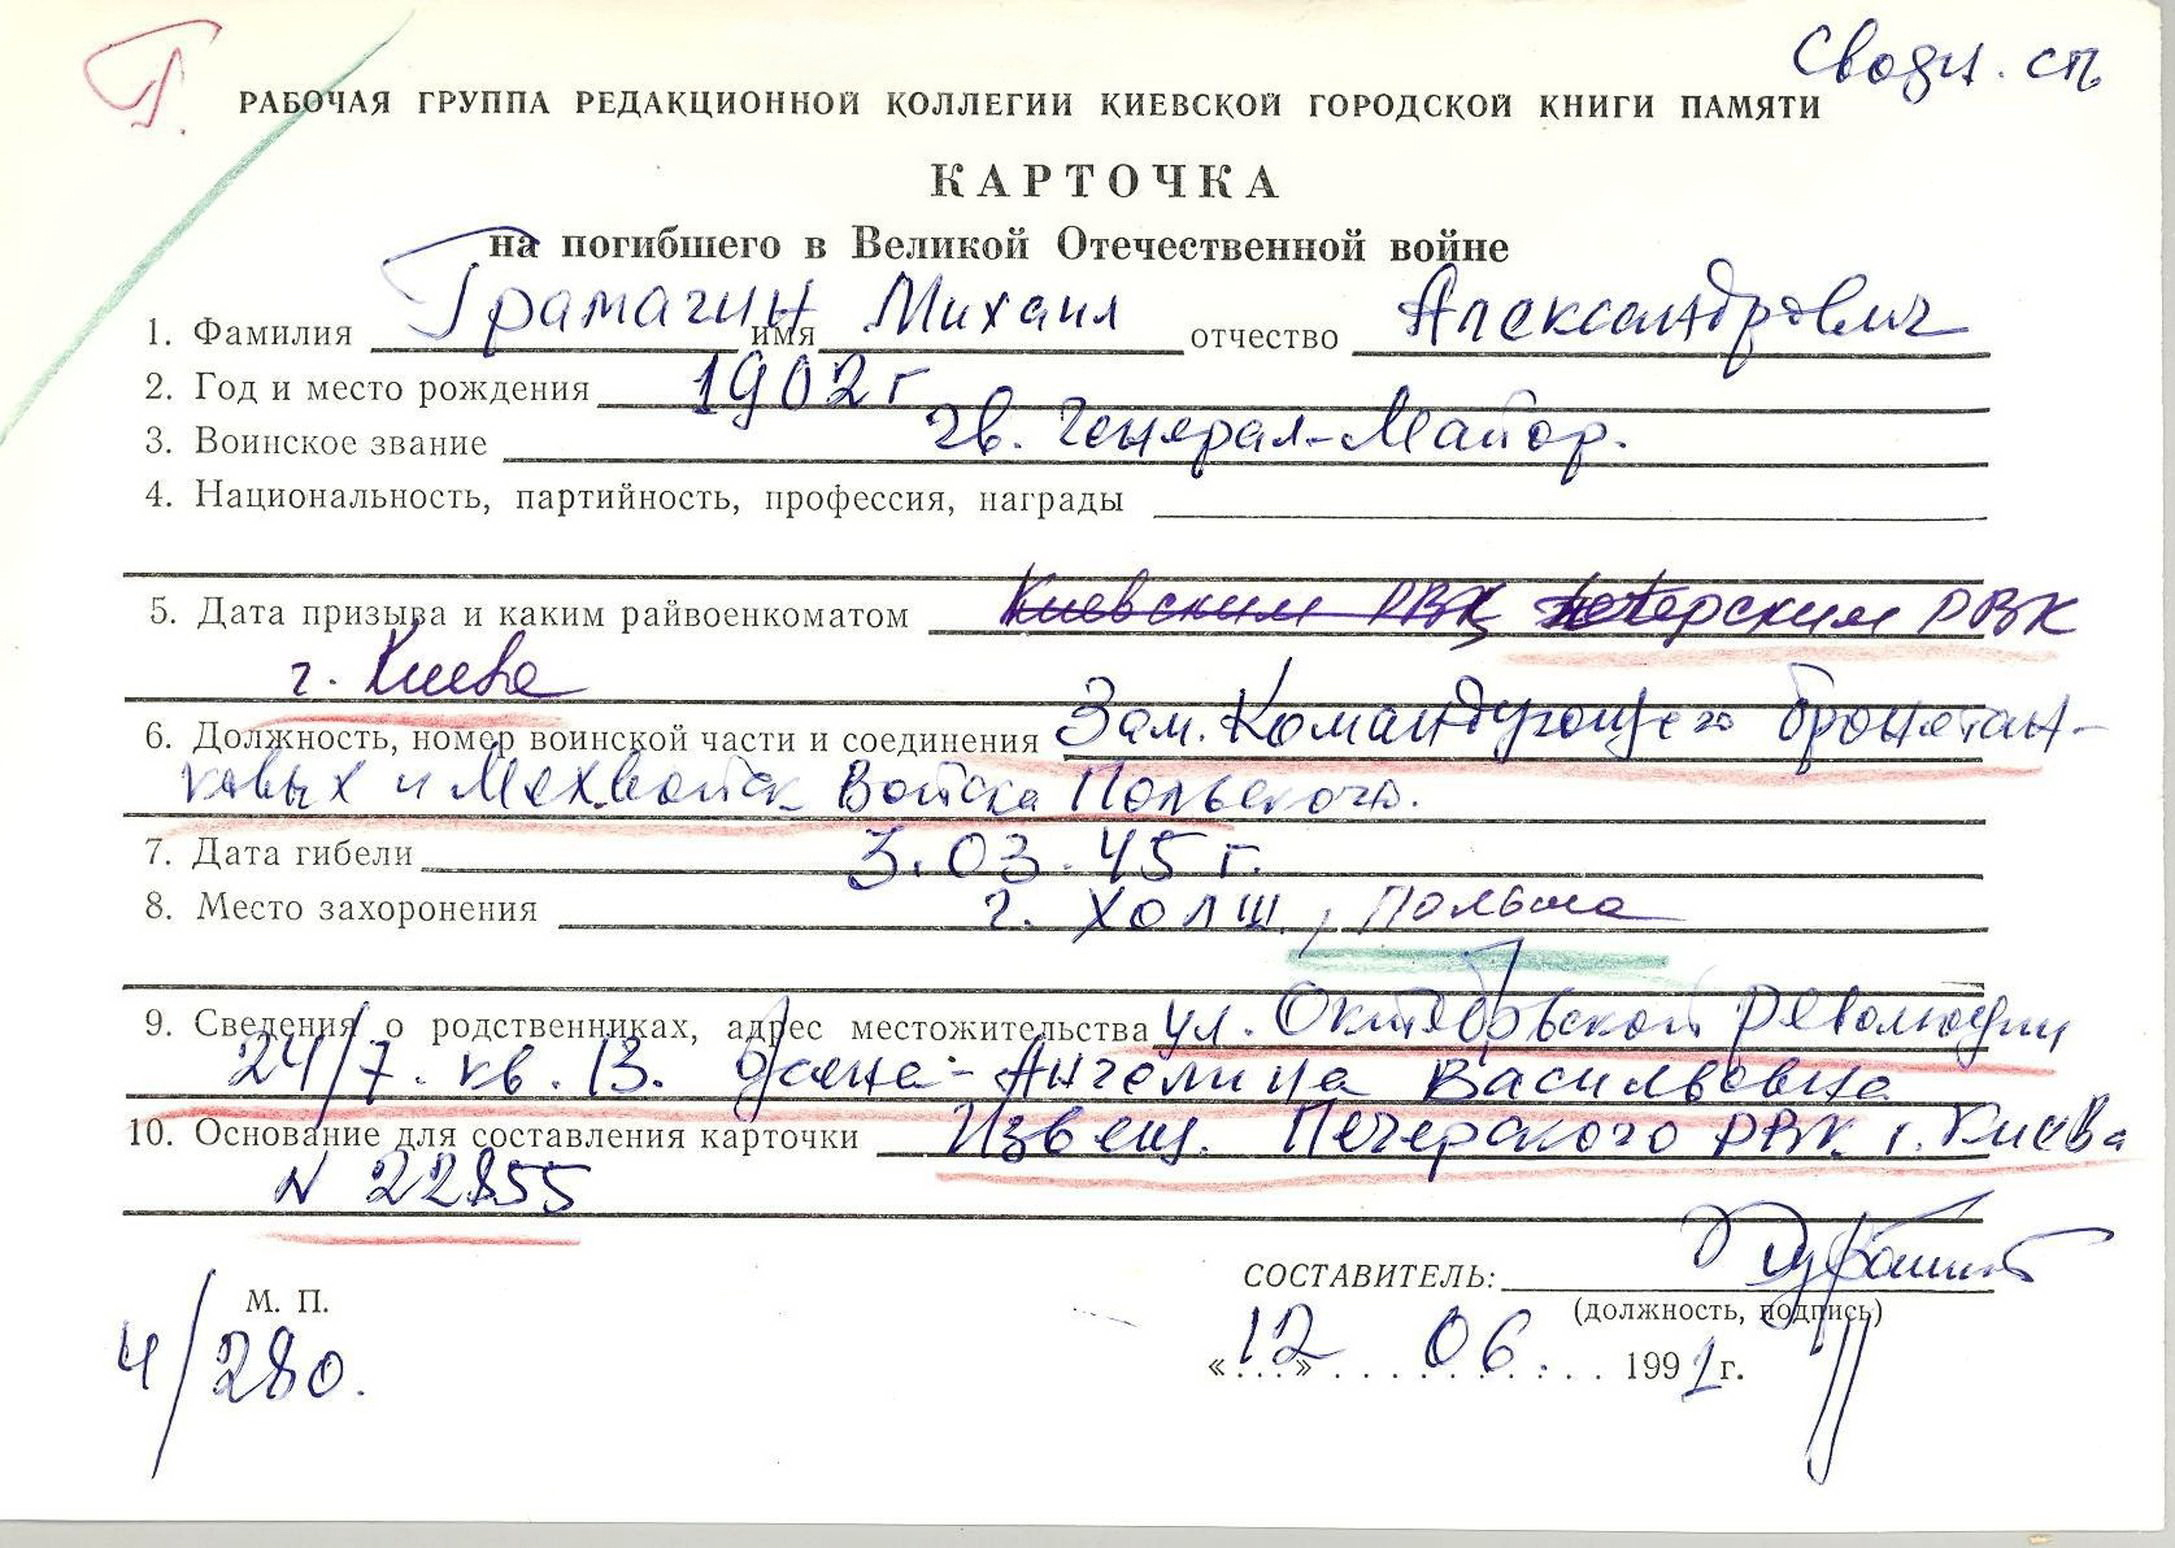 Г.
Сводн. сп
РАБОЧАЯ ГРУППА РЕДАКЦИОННОЙ КОЛЛЕГИИ КИЕВСКОЙ ГОРОДСКОЙ КНИГИ ПАМЯТИ
КАРТОЧКА
на погибшего в Великой Отечественной войне
1. Фамилия Грамагин имя Михаил отчество Александрович
2. Год и место рождения 1902 г
3. Воинское звание гв. Генерал-Майор.
4. Национальность, партийность, профессия, награды
5. Дата призыва и каким райвоенкоматом Киевским РВК Печерским РВК
г. Киева
6. Должность, номер воинской части и соединения Зам. Командующего бронетан-
ковых и Мехвойск Войска Польского.
7. Дата гибели 3.03.45 г.
8. Место захоронения г. Холш, Польша
9. Сведения о родственниках, адрес местожительства ул. Октябрьской Революции
24/7. кв. 13. Жена - Ангелина Васильевна
10. Основание для составления карточки Извещ. Печерского РВК г. Киева
N 22855
СОСТАВИТЕЛЬ:
М. П.
(должность, подпись)
4/280.
«12» 06. 1991 г.